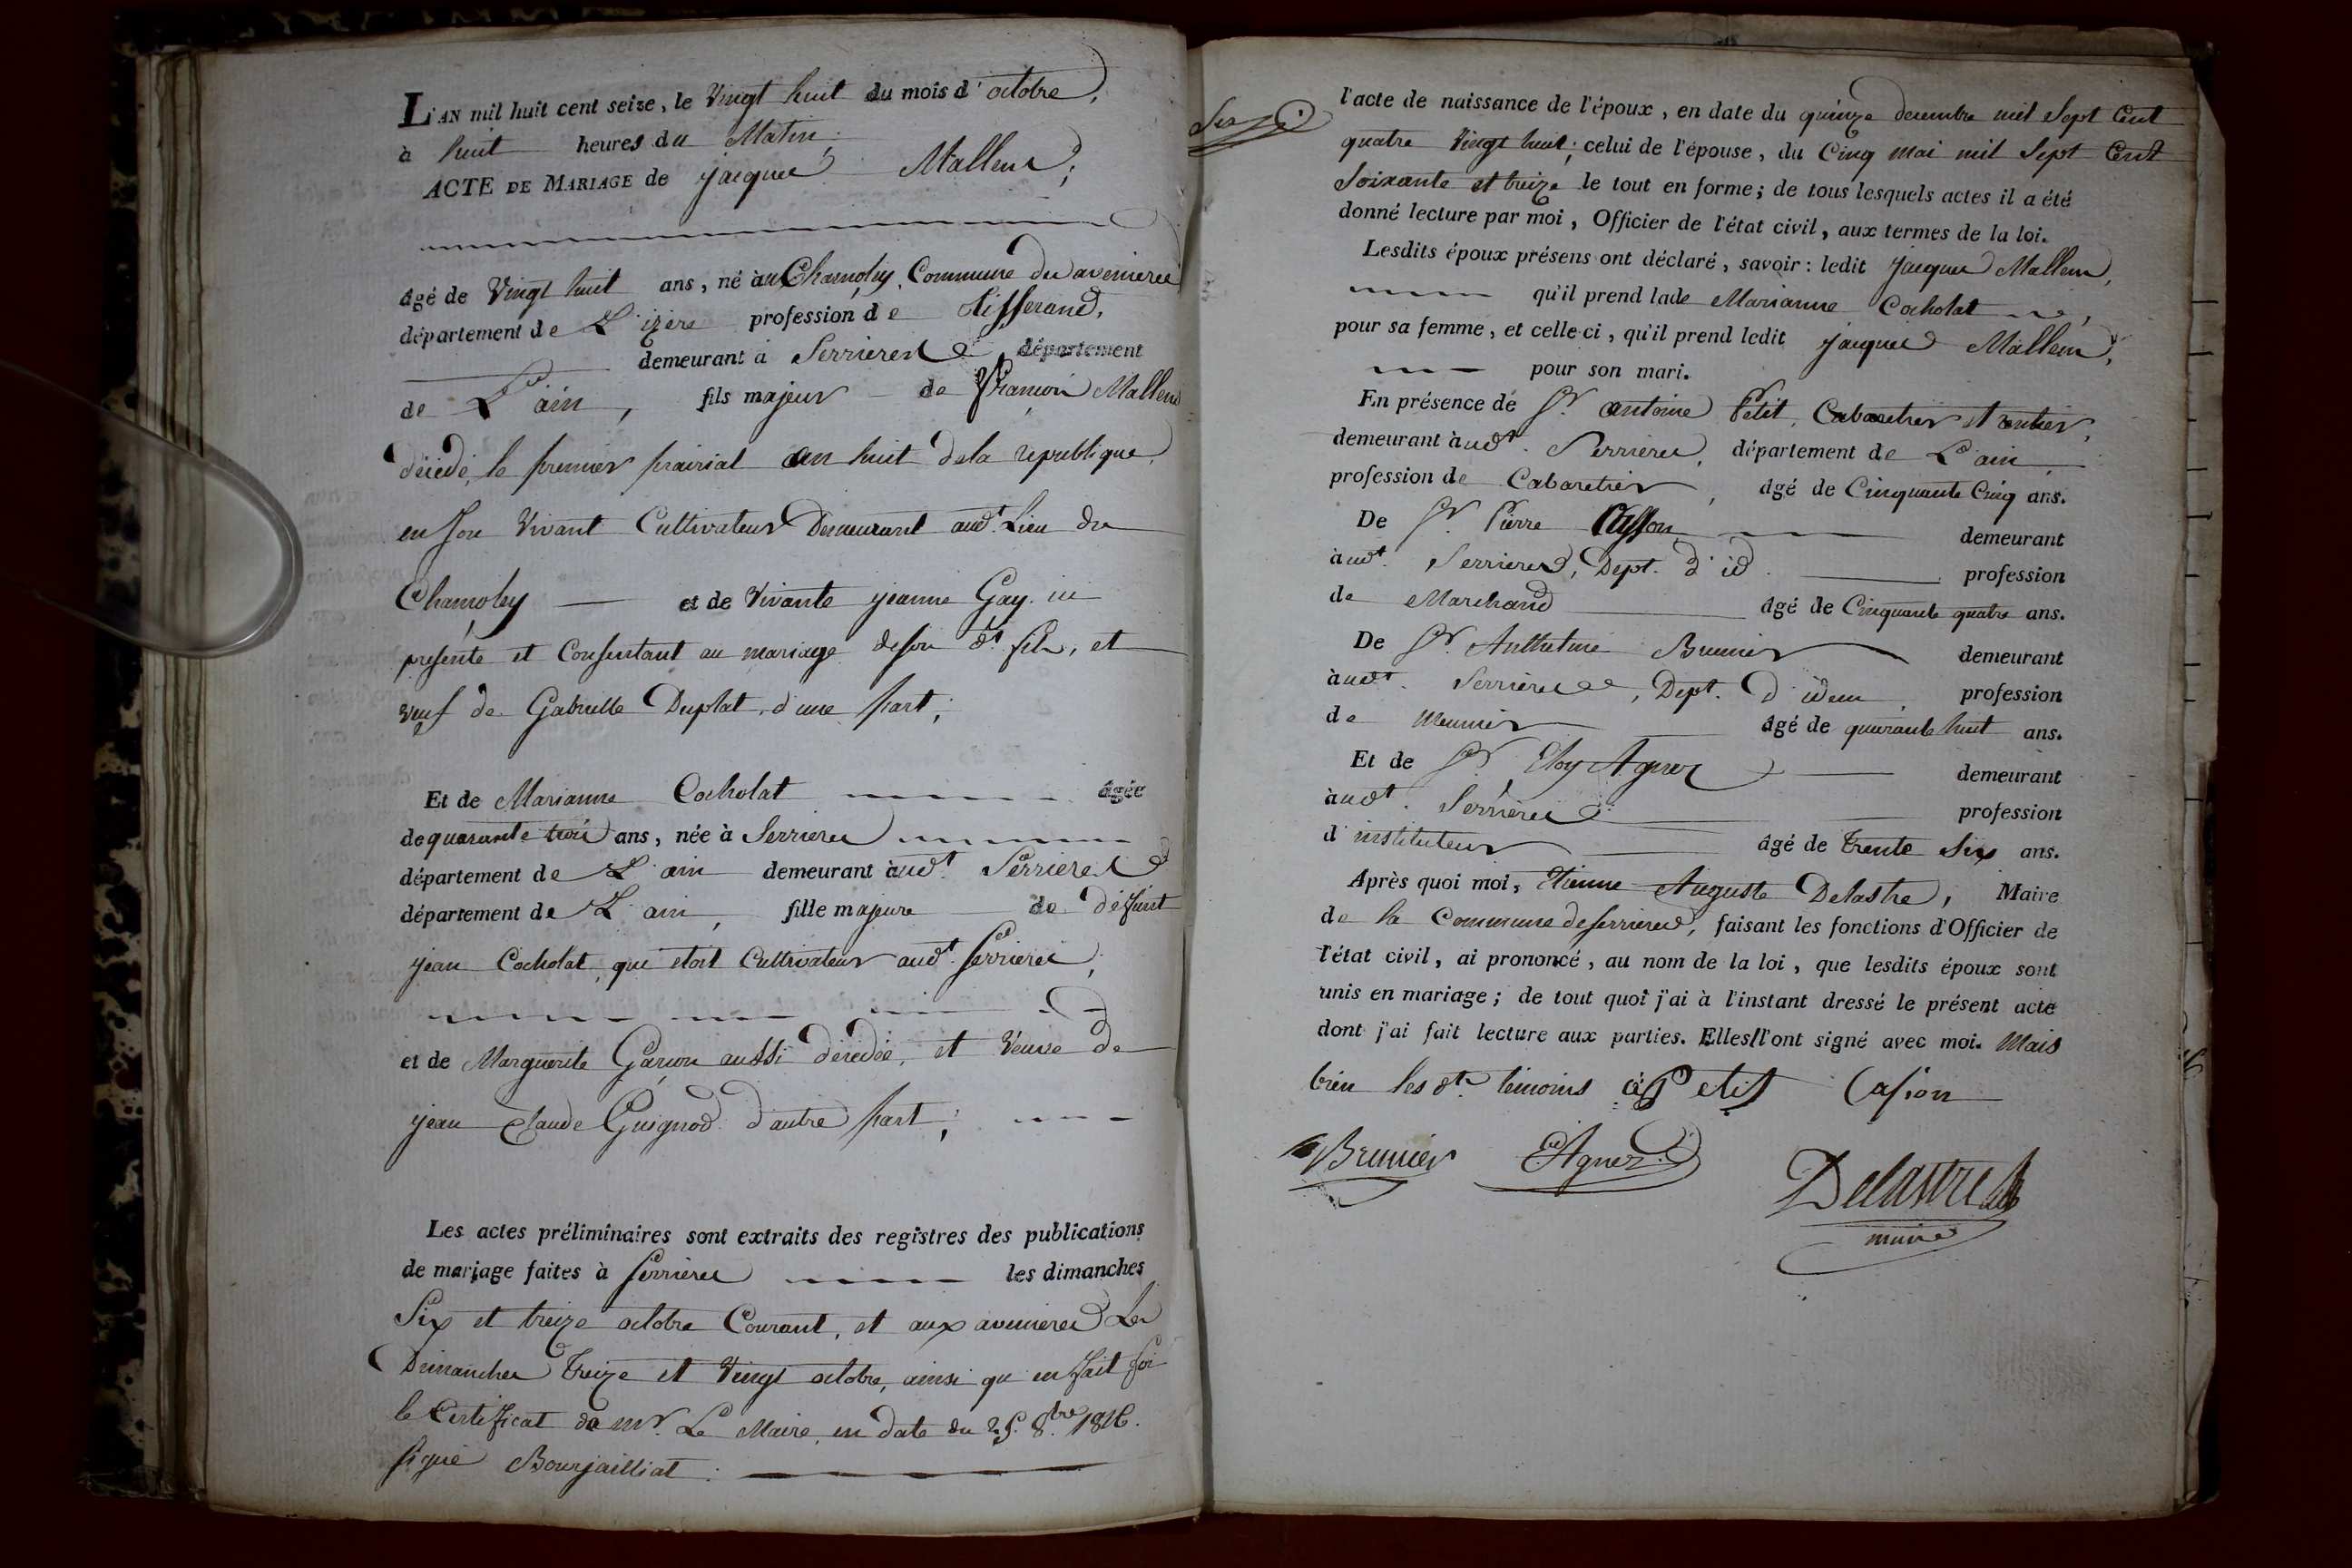 L'AN mil huit cent seize, le Vingt huit du mois d'octobre,
à huit heures du Matin;
ACTE DE MARIAGE de jacques Mallein;
âgé de Vingt huit ans, né au Chamoley, Commune des avenieres
département de L'izère profession de tisserand,
demeurant à Serrieres département
de L'ain, fils majeur de francois Mallein
décédé, le premier prairial an huit dela republique,
en son Vivant Cultivateur Demeurant audt. Lieu du
Chamoley et de Vivante jeanne Gay ici
présente et Consentant au mariage deson dt. fils, et
veuf de Gabrielle Duplat, d'une part;
Et de Marianne Cocholat âgée
de quarante trois ans, née à Serrieres
département de L'ain demeurant audt. Serrieres
département de L'ain, fille majeure de défunt
jean Cocholat, qui étoit Cultivateur audt. Serrieres,
et de Marguerite Garçon aussi décédée, et Veuve de
jean Claude Guignod d'autre part;
Les actes préliminaires sont extraits des registres des publications
de mariage faites à Serrieres les dimanches
Six et treize octobre Courant, et aux avenieres Les
Dimanches treize et Vingt octobre, ainsi qu'en fait foi
le Certificat de mr. Le Maire, en date du 25. 8bre. 1816.
signé Bourjailliat.
l'acte de naissance de l'époux, en date du quinze decembre mil Sept Cent
quatre Vingt huit; celui de l'épouse, du Cinq mai mil Sept Cent
Soixante et treize le tout en forme; de tous lesquels actes il a été
donné lecture par moi, Officier de l'état civil, aux termes de la loi.
Lesdits époux présens ont déclaré, savoir: ledit jacques Mallein,
qu'il prend lade Marianne Cocholat,
pour sa femme, et celle-ci, qu'il prend ledit jacques Mallein,
pour son mari.
En présence de Sr. antoine Petit, Cabaretier et rentier,
demeurant audt. Serrieres, département de L'ain,
profession de Cabaretier, âgé de Cinquante Cinq ans.
De Sr. Pierre Casson demeurant
audt. Serrieres, Dept. d'id. profession
de Marchand âgé de Cinquante quatre ans.
De Sr. Anthelme Brunier demeurant
audt. Serrieres, Dept. d'idem profession
de Meunier âgé de quarante huit ans.
Et de Sr. Eloy Agnez demeurant
audt. Serrieres profession
d'instituteur âgé de trente Six ans.
Après quoi moi, Etienne Auguste Delastre, Maire
de la Commune de Serrieres, faisant les fonctions d'Officier de
l'état civil, ai prononcé, au nom de la loi, que lesdits époux sont
unis en mariage; de tout quoi j'ai à l'instant dressé le présent acte
dont j'ai fait lecture aux parties. Elles l'ont signé avec moi. Mais
bien les dts. témoins Petit Casson
Brunier Agnez
Delastre
maire